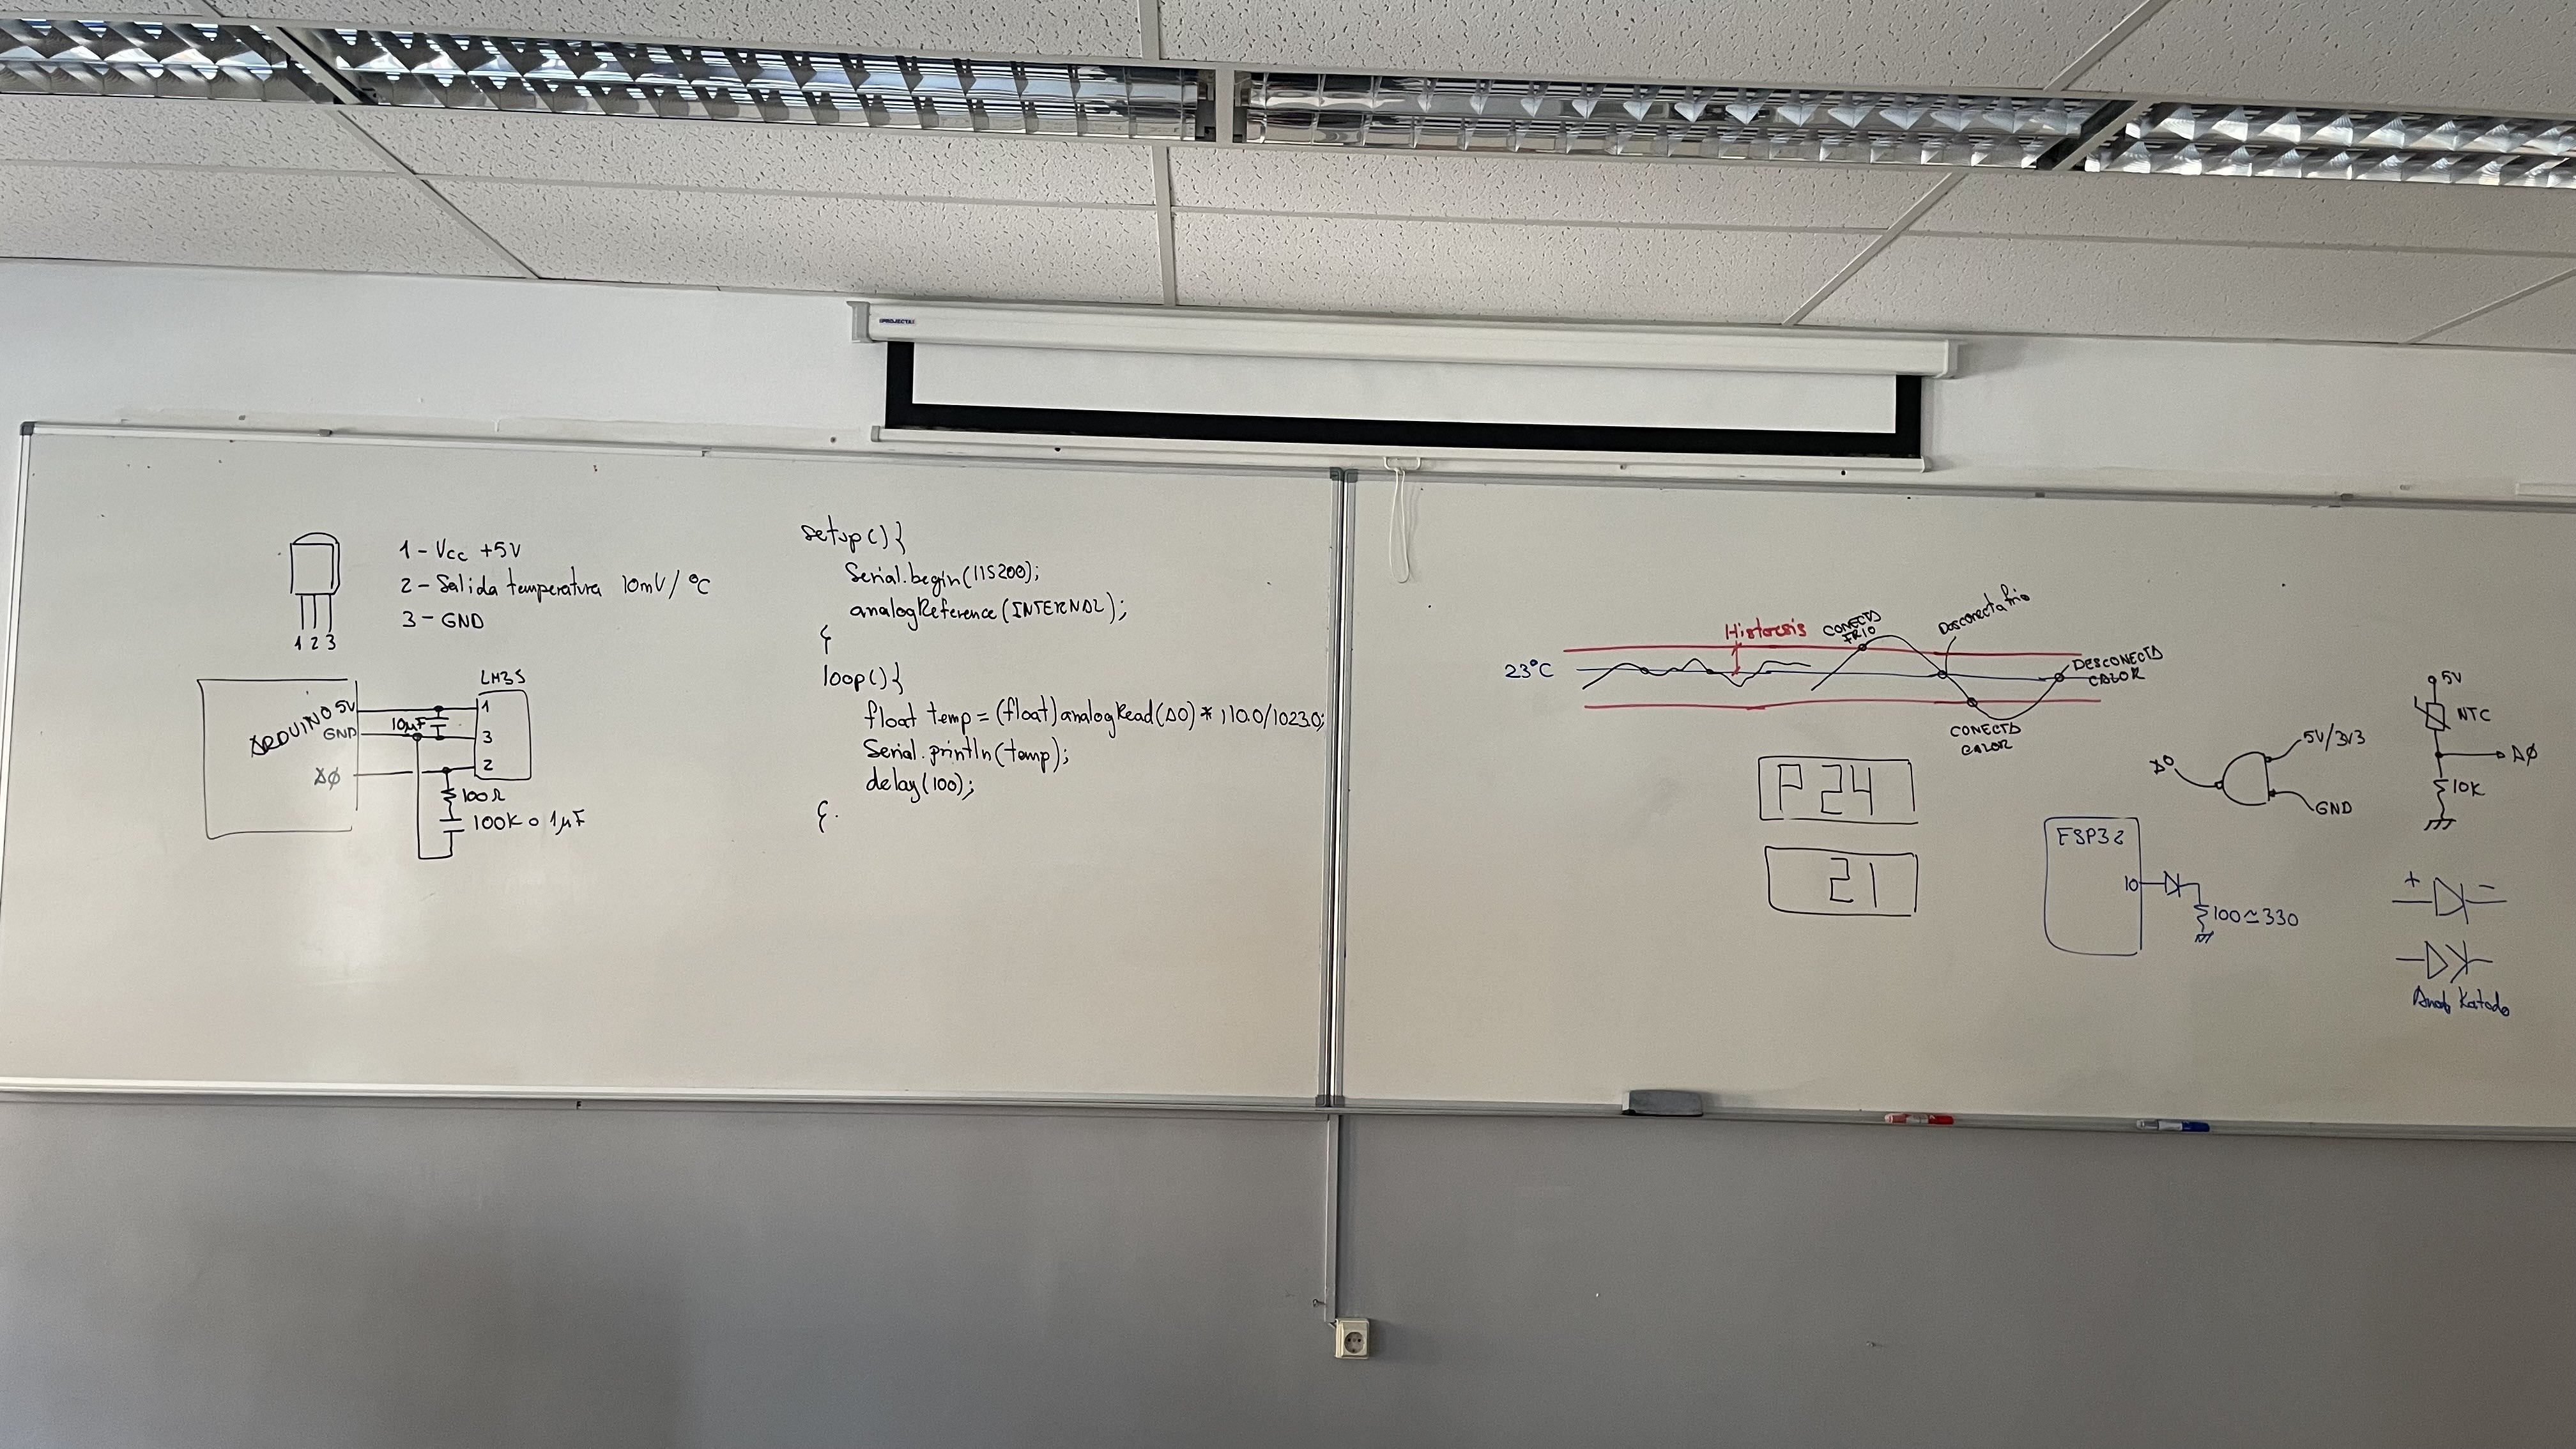 PROJECTA
1 - Vcc +5V
2 - Salida temperatura 10mV/ºC
3 - GND
1 2 3
LM35
ARDUINO
5V
GND
AØ
10µF
1
3
2
100Ω
100K o 1µF
setup(){
Serial.begin(115200);
analogReference(INTERNAL);
}
loop(){
float temp = (float)analogRead(A0) * 110.0/1023.0;
Serial.println(temp);
delay(100);
}.
Histeresis
CONECTA
FRIO
Desconecta frio
23ºC
DESCONECTA
CALOR
CONECTA
CALOR
P 24
21
A0
5V/3V3
GND
5V
NTC
AØ
10K
ESP32
10
100≃330
+ -
Anodo Katodo